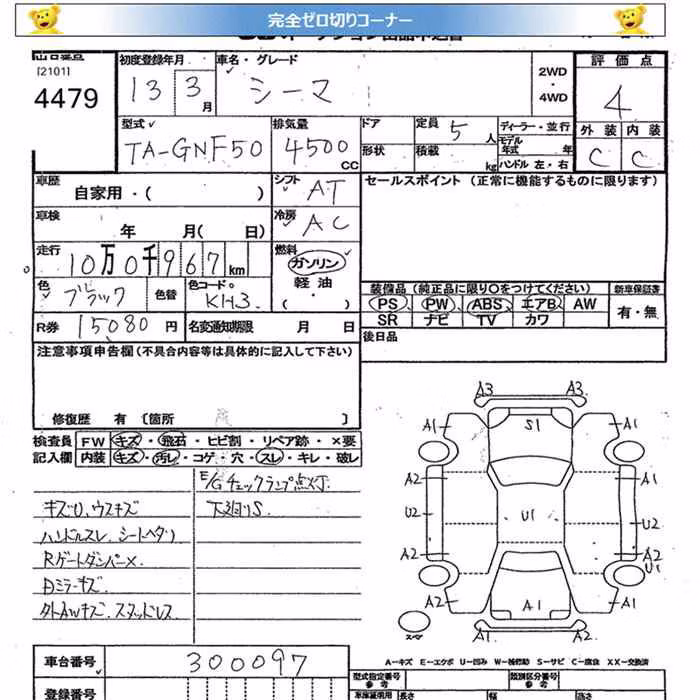 完全ゼロ切りコーナー
[2101]
4479
初度登録年月
13 3 月
車名・グレード
シーマ
2WD
・
4WD
評価点
4
外装 内装
C C
型式
TA-GNF50
排気量
4500 CC
ドア
形状
定員 5 人
積載 kg
ディーラー・並行
モデル年式 年
ハンドル 左・右
車歴
自家用・( )
シフト AT
車検
年 月( 日)
冷房 AC
セールスポイント (正常に機能するものに限ります)
走行
10万0千967km
燃料
ガソリン
軽油
( ・ )
色 ブラック
色替
色コード KH3
R券 15080 円
名変通知期限 月 日
装備品(純正品に限り〇をつけてください)
新車保証書
PS PW ABS エアB AW
SR ナビ TV カワ
有・無
後日品
注意事項申告欄(不具合内容等は具体的に記入して下さい)
修復歴 有 〔箇所 〕
検査員
記入欄
FW キズ・飛石・ヒビ割・リペア跡・×要
内装 キズ・汚レ・コゲ・穴・スレ・キレ・破レ
E/Gチェックランプ点灯
下廻りS.
キズU、ウスキズ
ハンドルスレ、シートヘタリ
RゲートダンパーX
Dミラーキズ
外AWキズ スタッドレス
A3 A3
A1 S1 A1
A2 A1
U2 U1 U2
A2 A2
U1
A2 A1 A2
スペア
A1 A2
A-キズ E-エクボ U-凹み W-補修跡 S-サビ C-腐食 XX-交換済
車台番号
300097
登録番号
型式指定番号
参考
類別区分番号
参考
長さ 幅 高さ